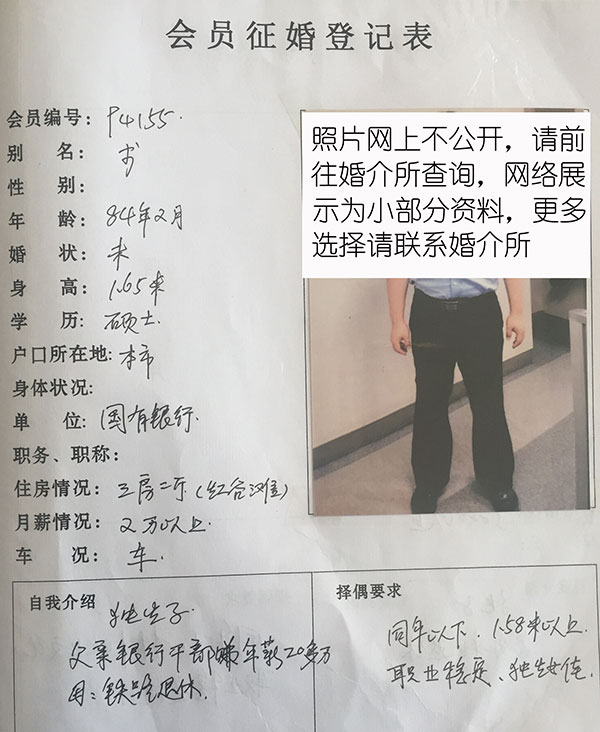 会员征婚登记表
会员编号：P4155.
别 名：
性 别：
年 龄：84年2月
婚 状：未
身 高：1.65米
学 历：硕士
户口所在地：本市
身体状况:
单 位：国有银行.
职务、职称：
住房情况：三房二厅（红谷滩）
月薪情况：2万以上.
车 况：车.
照片网上不公开，请前
往婚介所查询，网络展
示为小部分资料，更多
选择请联系婚介所
自我介绍 独生子
父亲银行干部 年薪20多万
母：铁路退休.
择偶要求
同年以下. 1.58米以上.
职业稳定、独生女佳.